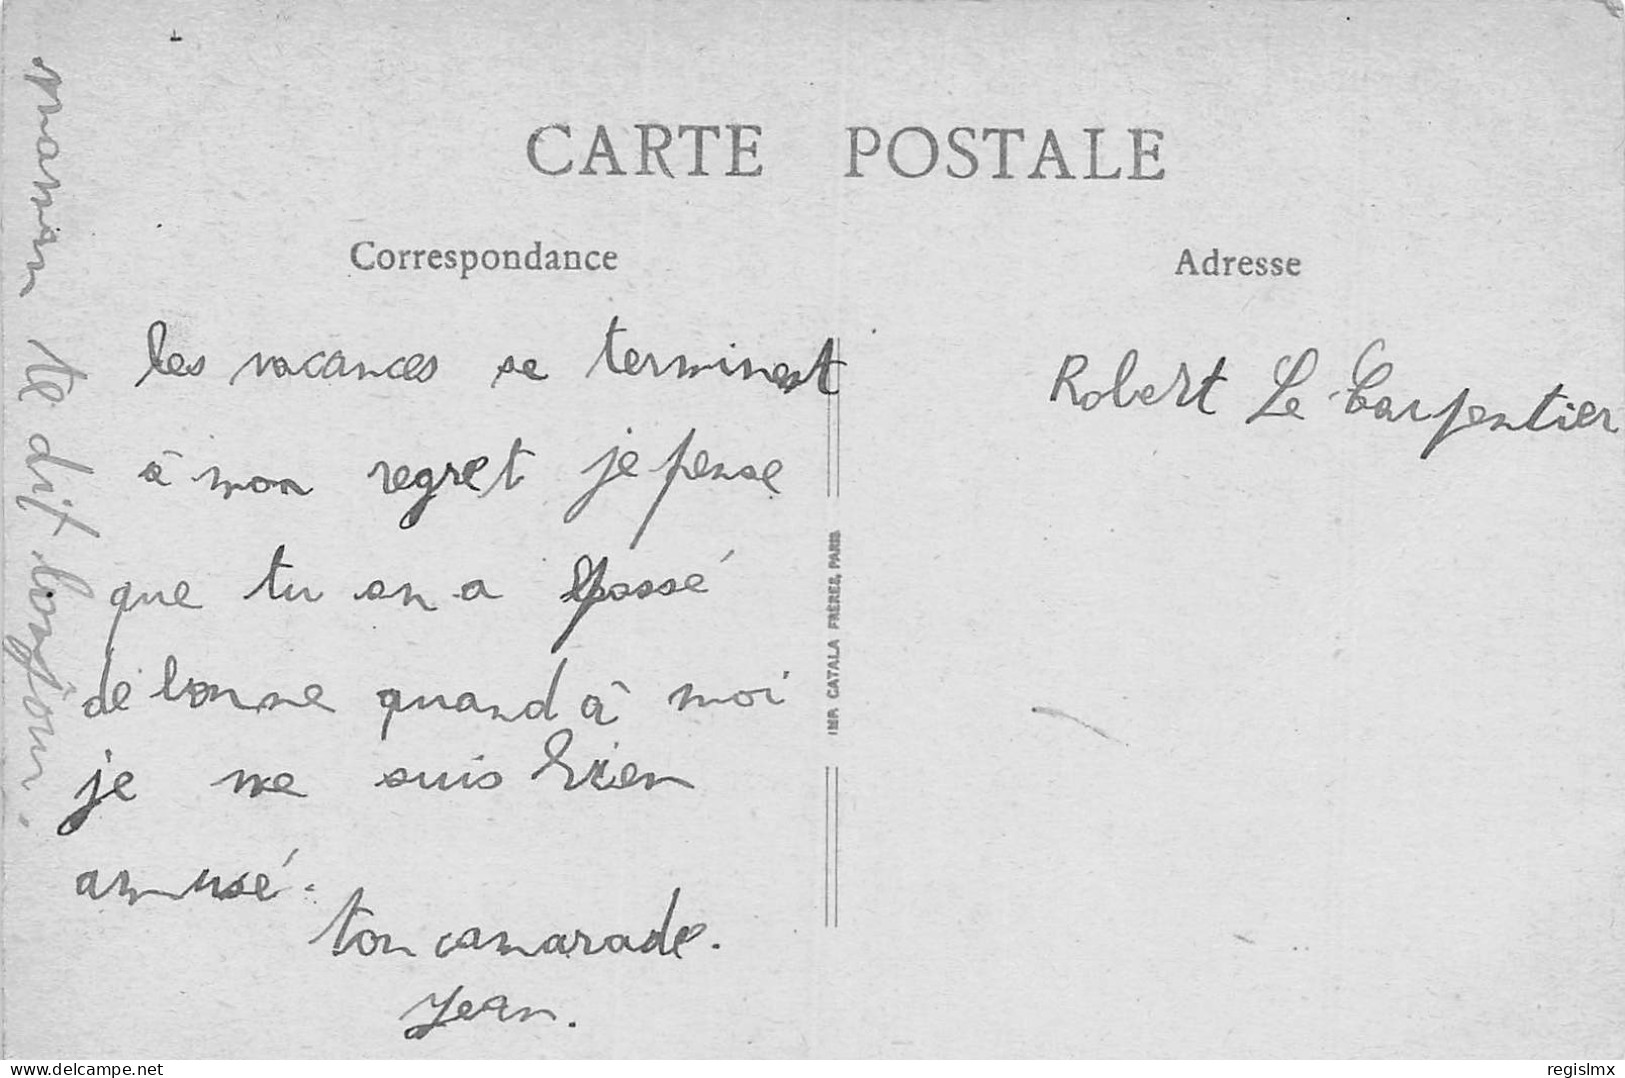 CARTE POSTALE
Correspondance
Adresse
les vacances se terminent
à mon regret je pense
que tu en a passé
de bonne quand à moi
je me suis bien
amusé.
ton camarade.
Jean.
maman te dit bonjour.
Robert Le Carpentier
IMP. CATALA FRÈRES, PARIS
delcampe.net
regislmx